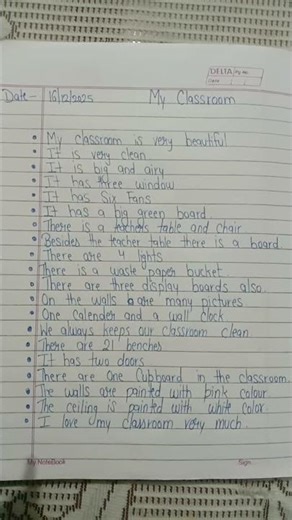 DELTA Pg No.
Date
Date - 16/12/2025 My Classroom
• My classroom is very beautiful
• It is very clean
• It is big and airy
• It has three window
• It has Six Fans
• It has a big green board.
• There is a teacher's table and chair.
• Besides the teacher table there is a board
• There are 4 lights
• There is a waste paper bucket.
• There are three display boards also.
• On the walls are many pictures
• One calender and a wall clock.
• We always keeps our classroom clean
• There are 21 benches
• It has two doors
• There are One Cupboard in the classroom.
• The walls are painted with pink colour
• The ceiling is painted with white color
• I love my classroom very much.
My NoteBook Sign